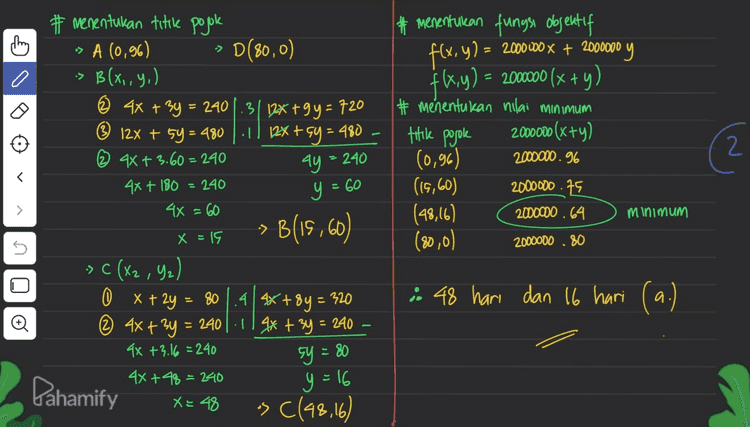 # menentukan titik pojok
> A (0,96) > D(80,0)
> B(x₁,y₁)
② 4x + 3y = 240 |.3| 12x + 9y = 720
③ 12x + 5y = 480 |.1| 12x + 5y = 480 -
② 4x + 3.60 = 240 4y = 240
4x + 180 = 240 y = 60
4x = 60
x = 15 > B(15,60)
> C (x₂, y₂)
① x + 2y = 80 |.4| 4x + 8y = 320
② 4x + 3y = 240 |.1| 4x + 3y = 240 -
4x + 3.16 = 240 5y = 80
4x + 48 = 240 y = 16
x = 48 > C(48,16)
Pahamify
# menentukan fungsi objektif
f(x,y) = 2000000x + 2000000y
f(x,y) = 2000000 (x+y)
# menentukan nilai minimum
titik pojok 2000000(x+y)
(0,96) 2000000.96
(15,60) 2000000.75
(48,16) 2000000.64 minimum
(80,0) 2000000.80
∴ 48 hari dan 16 hari (a.)
2